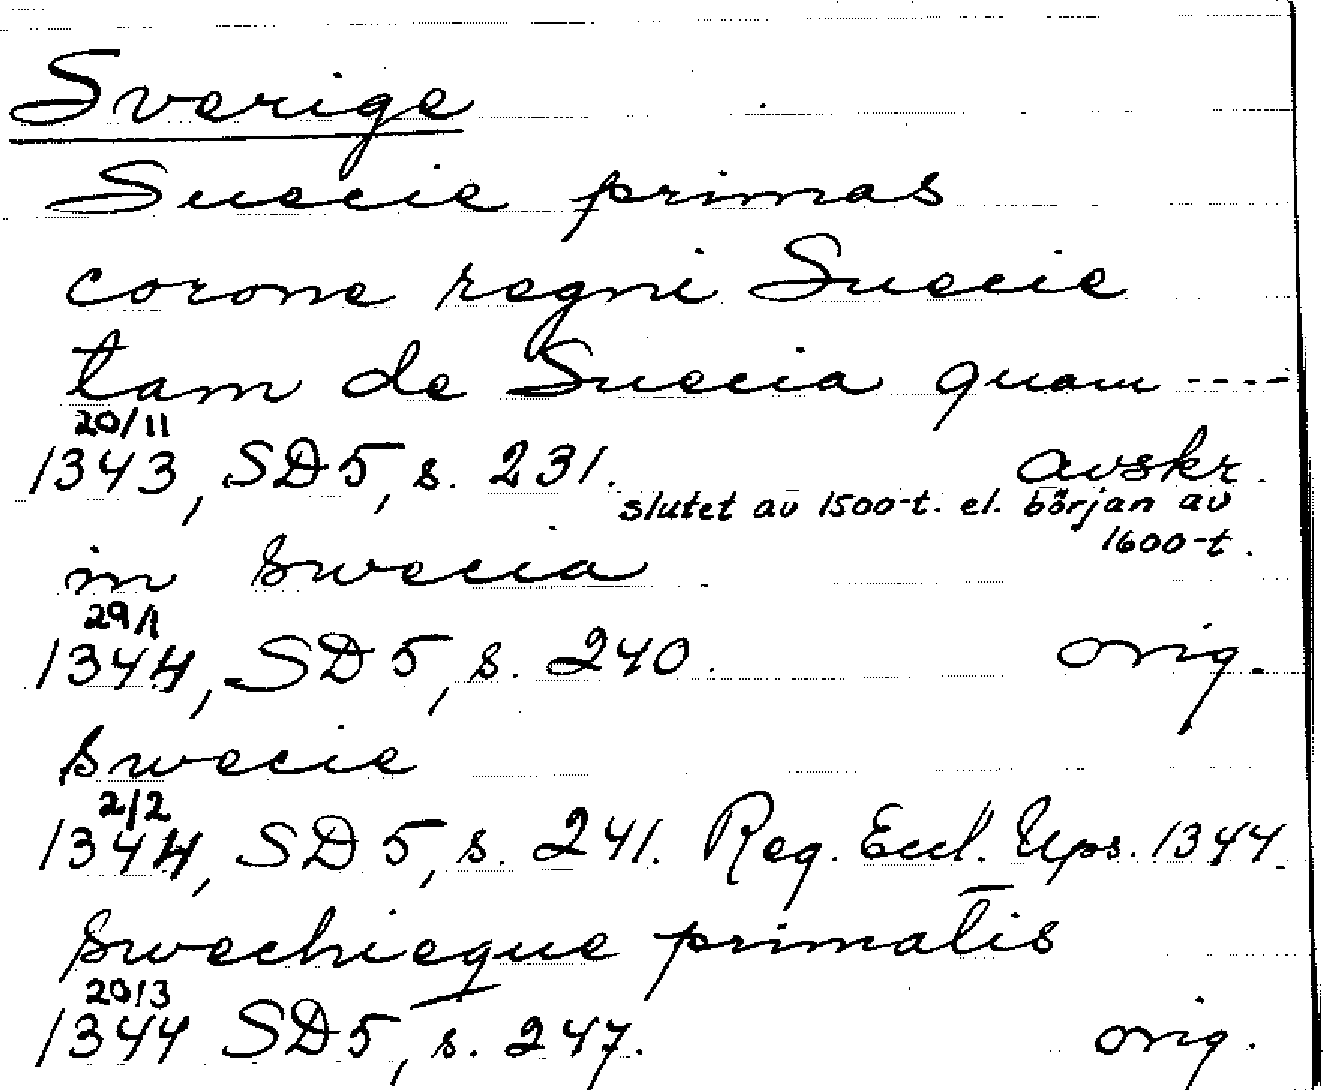 Sverige
Suecie primas
corone regni Suecie
tam de Suecia quam ----
20/11
1343, SD5, s. 231. avskr.
slutet av 1500-t. el. början av
1600-t.
in Swecia
29/1
1344, SD5, s. 240. orig.
Swecie
2/2
1344, SD5, s. 241. Reg. Eccl. Ups. 1344.
Swechieque primatis
20/3
1344 SD5, s. 247. orig.